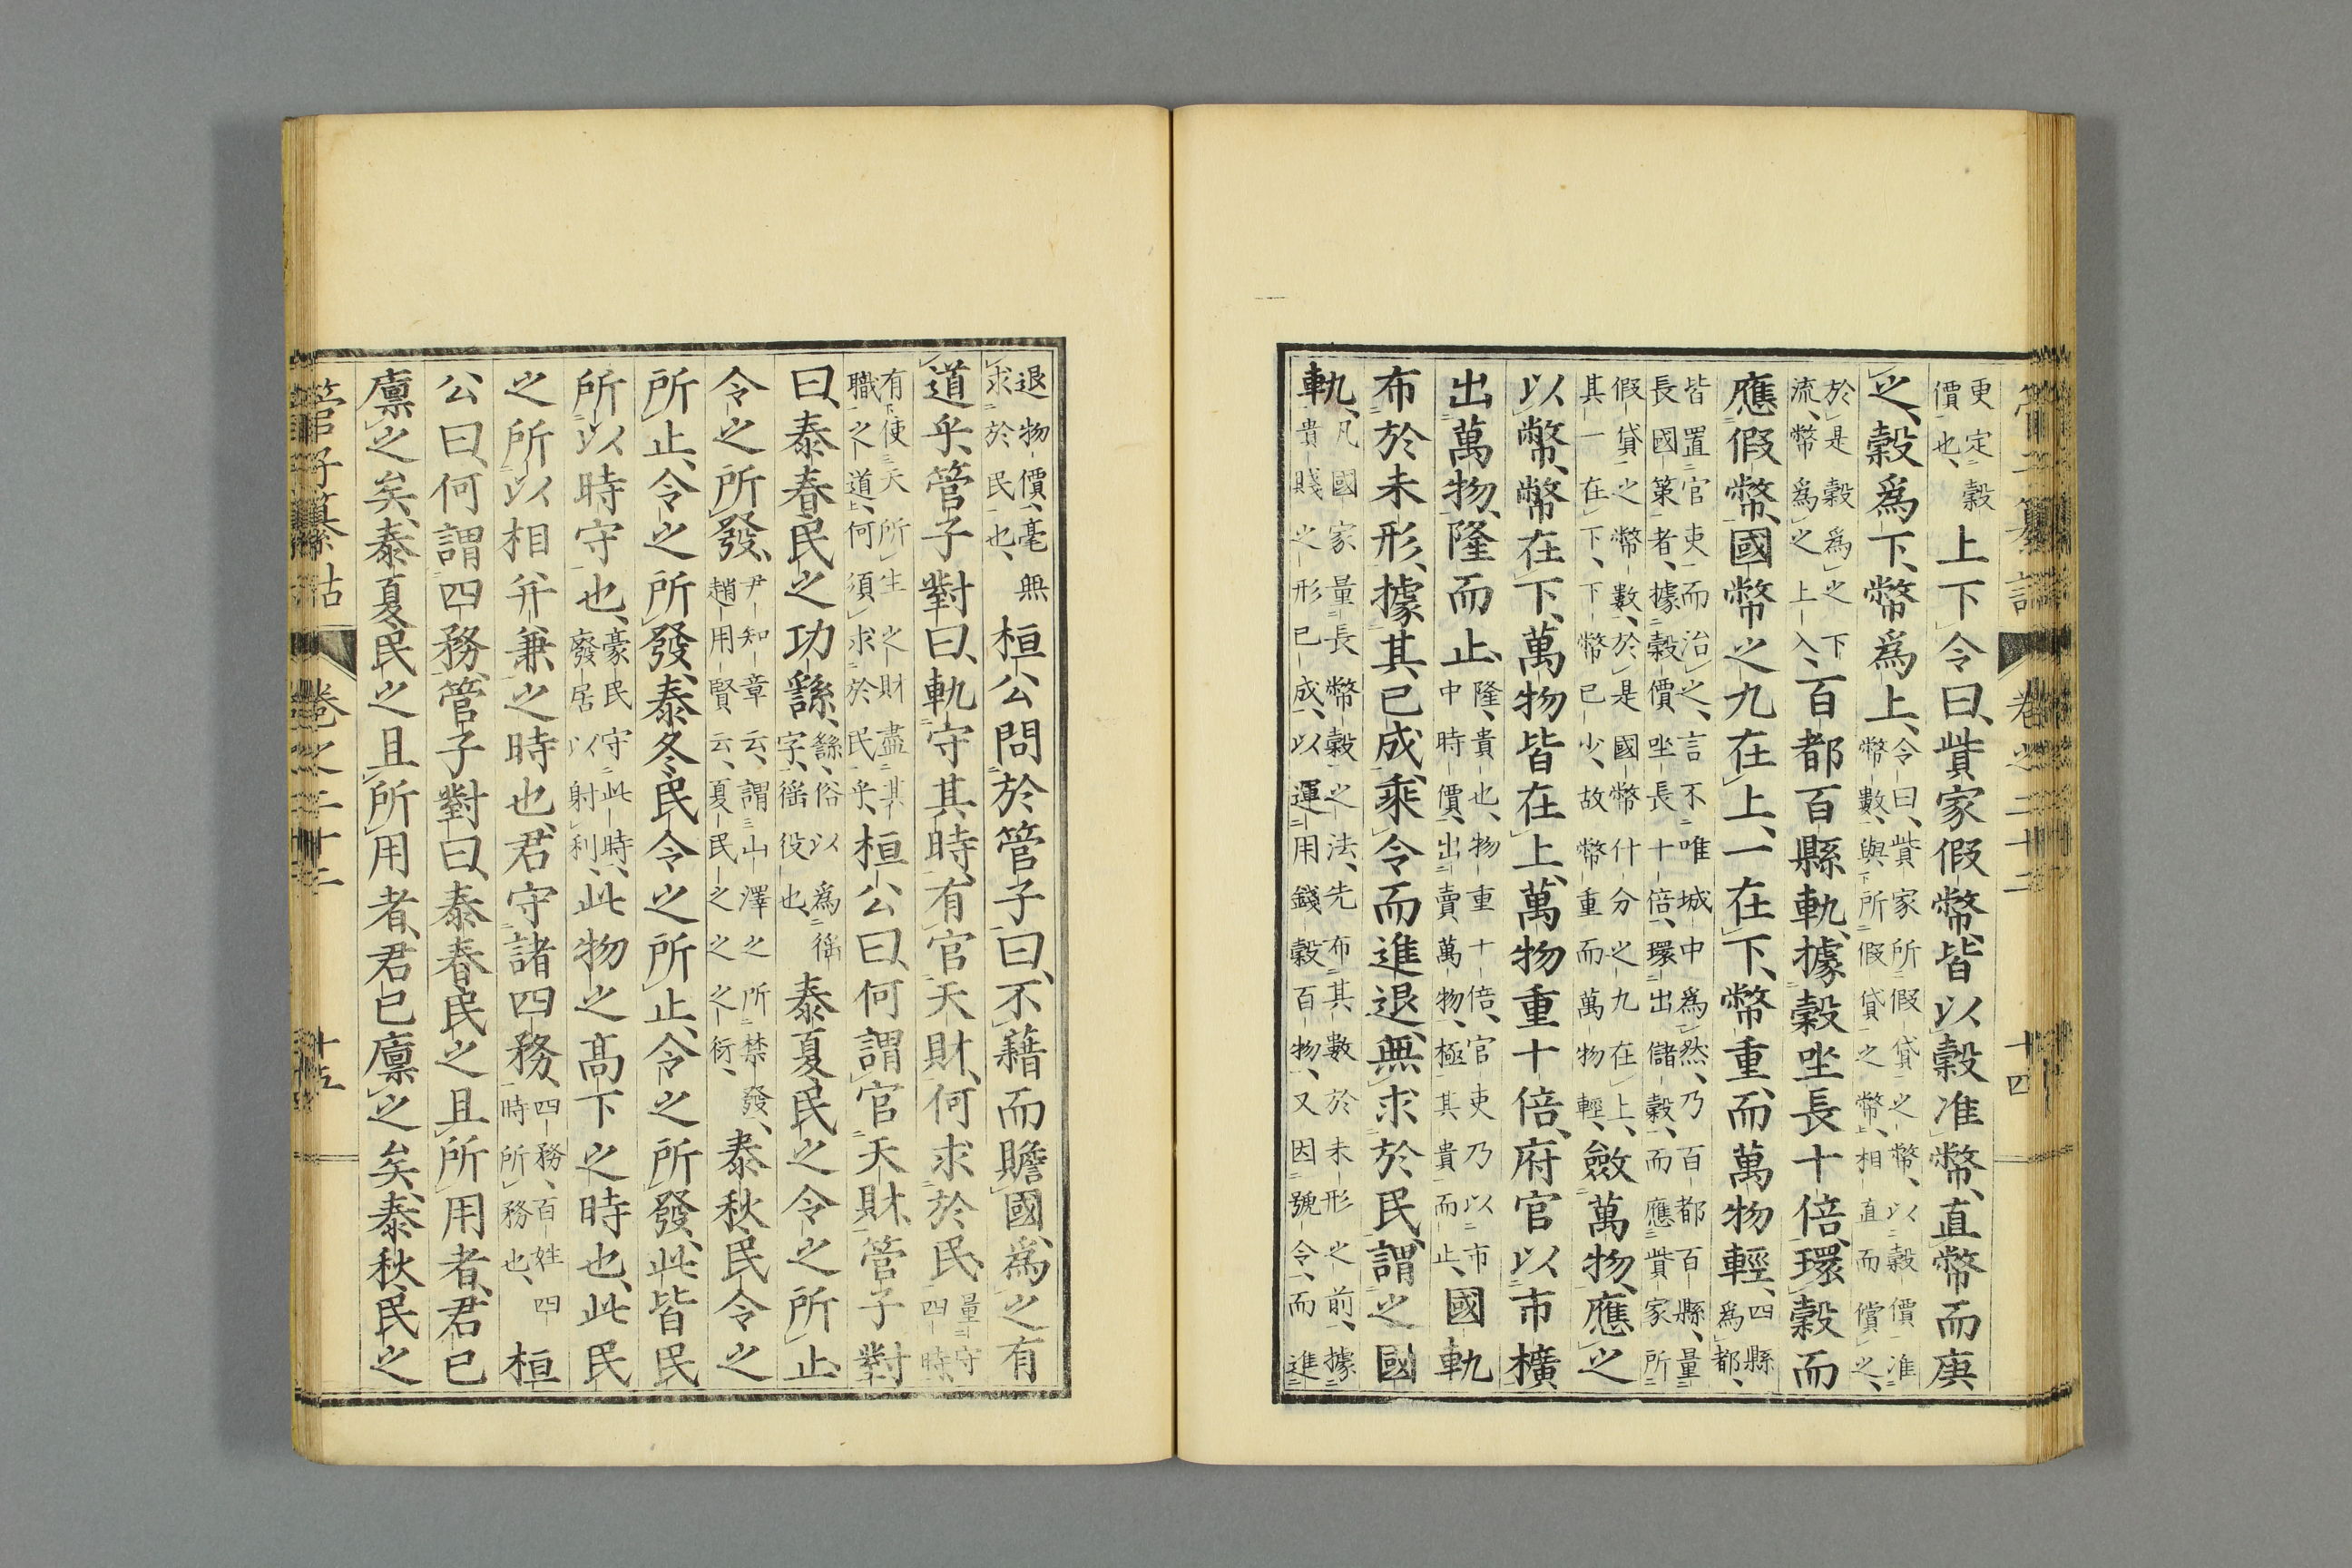 管子纂詁 卷之二十二 十四
更定穀價也、上下令曰、貲家假幣、皆以穀准幣、直幣而庚
之、穀爲下、幣爲上、令曰、貲家所假貸之幣、以穀價准幣數、與所假貸之幣、相直而償之、
於是穀爲之下流、幣爲之上入、百都百縣軌、據穀坐長十倍、環穀而
應假幣、國幣之九在上、一在下、幣重、而萬物輕、四縣爲都、
皆置官吏而治之、言不唯城中爲然、乃百都百縣、量長國策者、據穀價坐長十倍、環出儲穀、而應貲家所
假貸之幣數、於是國幣什分之九在上、其一在下、下幣已少、故幣重而萬物輕、斂萬物、應之
以幣、幣在下、萬物皆在上、萬物重十倍、府官以市櫎
出萬物、隆而止、隆、貴也、物重十倍、官吏乃以市中時價、出賣萬物、極其貴而止、國軌
布於未形、據其已成、乘令而進退、無求於民、謂之國
軌、凡國家量長幣穀之法、先布其數於未形之前、據貴賤之形已成、以運用錢穀百物、又因號令、而進
退物價、毫無求於民也、桓公問於管子曰、不藉而贍國、爲之有
道乎、管子對曰、軌守其時、有官天財、何求於民、量守四時
有使天所生之財盡其職之道、何須求於民乎、桓公曰、何謂官天財、管子對
曰、泰春民之功繇、繇、俗以爲徭字、徭役也、泰夏民之令之所止、
令之所發、尹知章云、謂山澤之所禁發、趙用賢云、夏民之之之衍、泰秋民令之
所止、令之所發、泰冬民令之所止、令之所發、此皆民
所以時守也、豪民守此時、廢居以射利、此物之高下之時也、此民
之所以相幷兼之時也、君守諸四務、四務、百姓四時所務也、桓
公曰、何謂四務、管子對曰、泰春民之且所用者、君已
廩之矣、泰夏民之且所用者、君已廩之矣、泰秋民之
管子纂詁 卷之二十二 十五